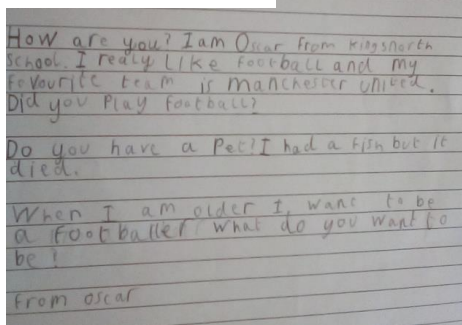 How are you? I am Oscar from Kingsnorth
School. I realy like football and my
fovourite team is manchester united.
Did you Play football?
Do you have a Pet? I had a fish but it
died.
When I am older I want to be
a footballer what do you want to
be?
from oscar